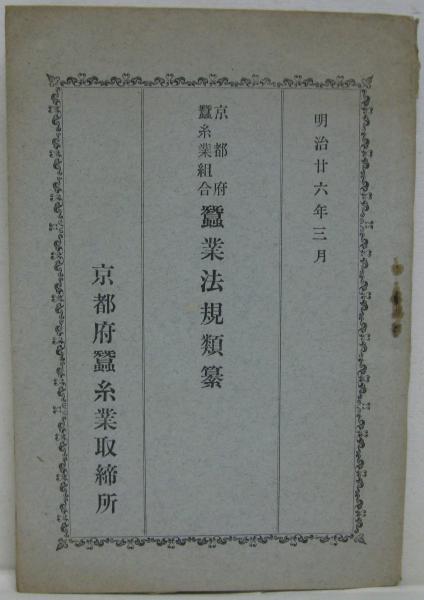 明治廿六年三月
京都府
蠶糸業組合
蠶業法規類纂
京都府蠶糸業取締所